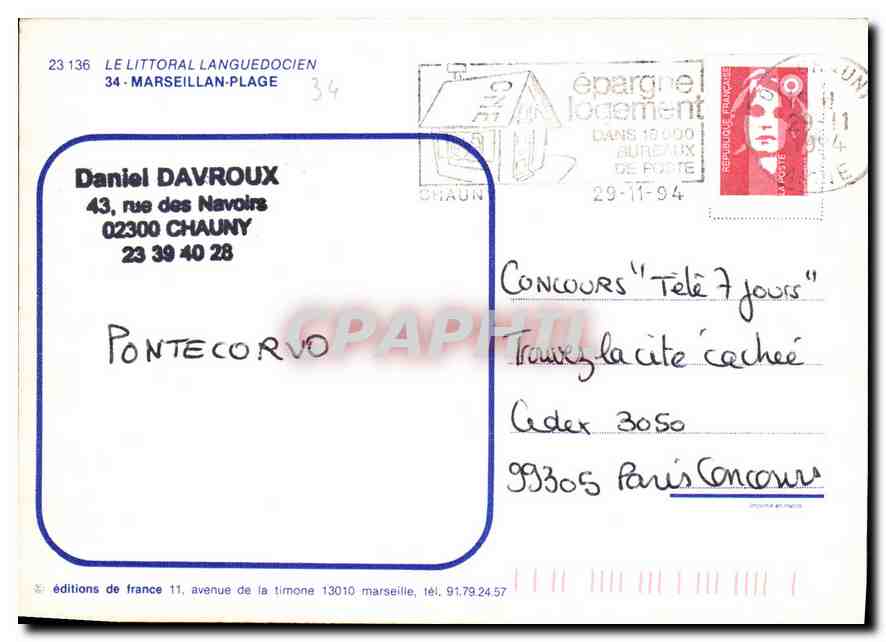 23 136 LE LITTORAL LANGUEDOCIEN
34 - MARSEILLAN-PLAGE
34
Daniel DAVROUX
43, rue des Navoirs
02300 CHAUNY
23 39 40 28
PONTECORVO
CNE
épargne
logement
DANS 18000
BUREAUX
DE POSTE
CHAUN
29-11-94
RÉPUBLIQUE FRANÇAISE
LA POSTE
29-11
1994
CONCOURS "Télé 7 jours"
Trouvez la cité cachée
Cedex 3050
99305 Paris Concours
CPAPHIL
© éditions de france 11, avenue de la timone 13010 marseille, tél. 91.79.24.57